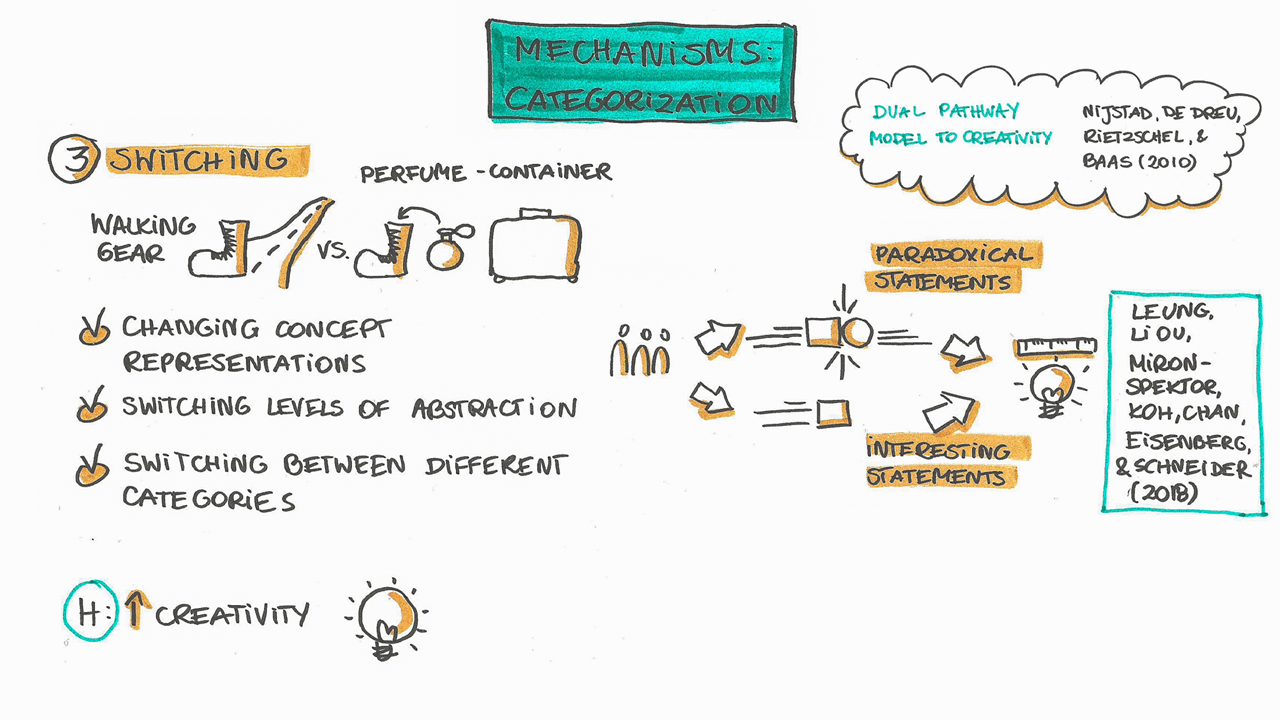 MECHANISMS:
CATEGORIZATION
DUAL PATHWAY
MODEL TO CREATIVITY
NIJSTAD, DE DREU,
RIETZSCHEL, &
BAAS (2010)
3 SWITCHING
PERFUME-CONTAINER
WALKING
GEAR
VS.
CHANGING CONCEPT
REPRESENTATIONS
SWITCHING LEVELS OF ABSTRACTION
SWITCHING BETWEEN DIFFERENT
CATEGORIES
H: ↑ CREATIVITY
PARADOXICAL
STATEMENTS
INTERESTING
STATEMENTS
LEUNG,
LIOU,
MIRON-
SPEKTOR,
KOH, CHAN,
EISENBERG,
& SCHNEIDER
(2018)